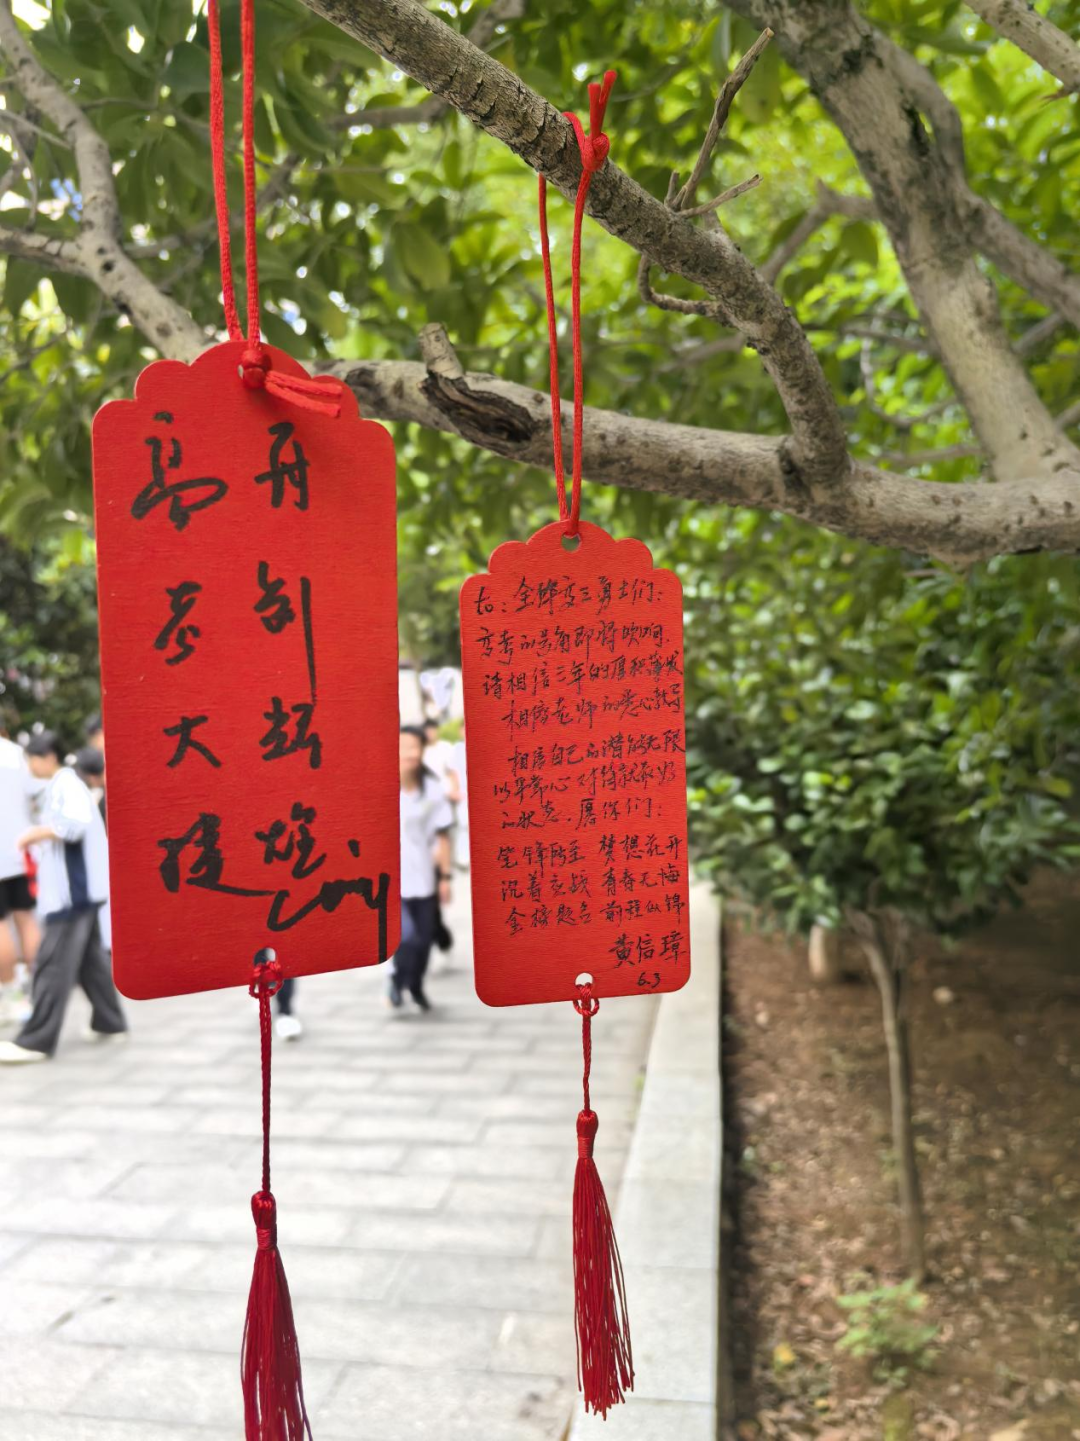 高考大捷
再创辉煌.
to:全体高三勇士们:
高考的号角即将吹响.
请相信三年的厚积薄发
相信老师的悉心教导
相信自己的潜能无限
以平常心对待就是最好
的状态.愿你们:
笔锋所至 梦想花开
沉着应战 青春无悔
金榜题名 前程似锦
黄信璋
6.3